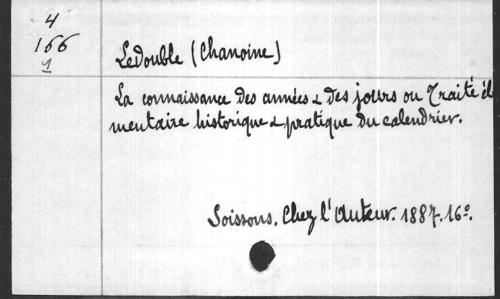 4
166
1
Ledouble (Chanoine)
La connaissance des années & des jours ou Traité élé
mentaire historique & pratique du calendrier.
Soissons. Chez l'Auteur. 1887. 16º.